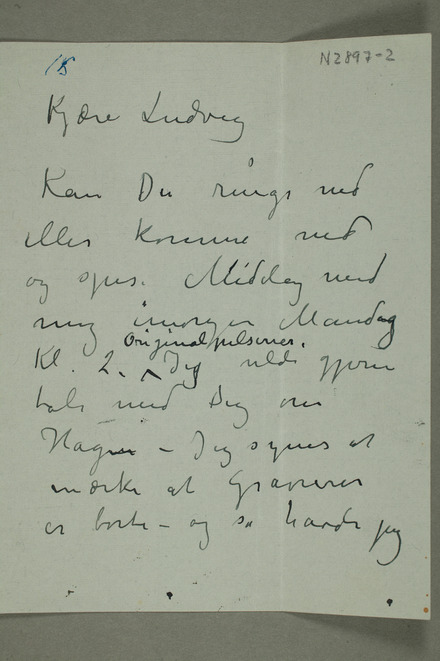 15
N2897-2
Kjære Ludvig
Kan Du ringe ned
eller komme ned
og spise Middag med
mig imorgen Mandag
Originalpilsener.
Kl. 2. Jeg vilde gjerne
tale med Dig om
– Jeg synes at
mærke at Gravurer
er borte – og så havde jeg